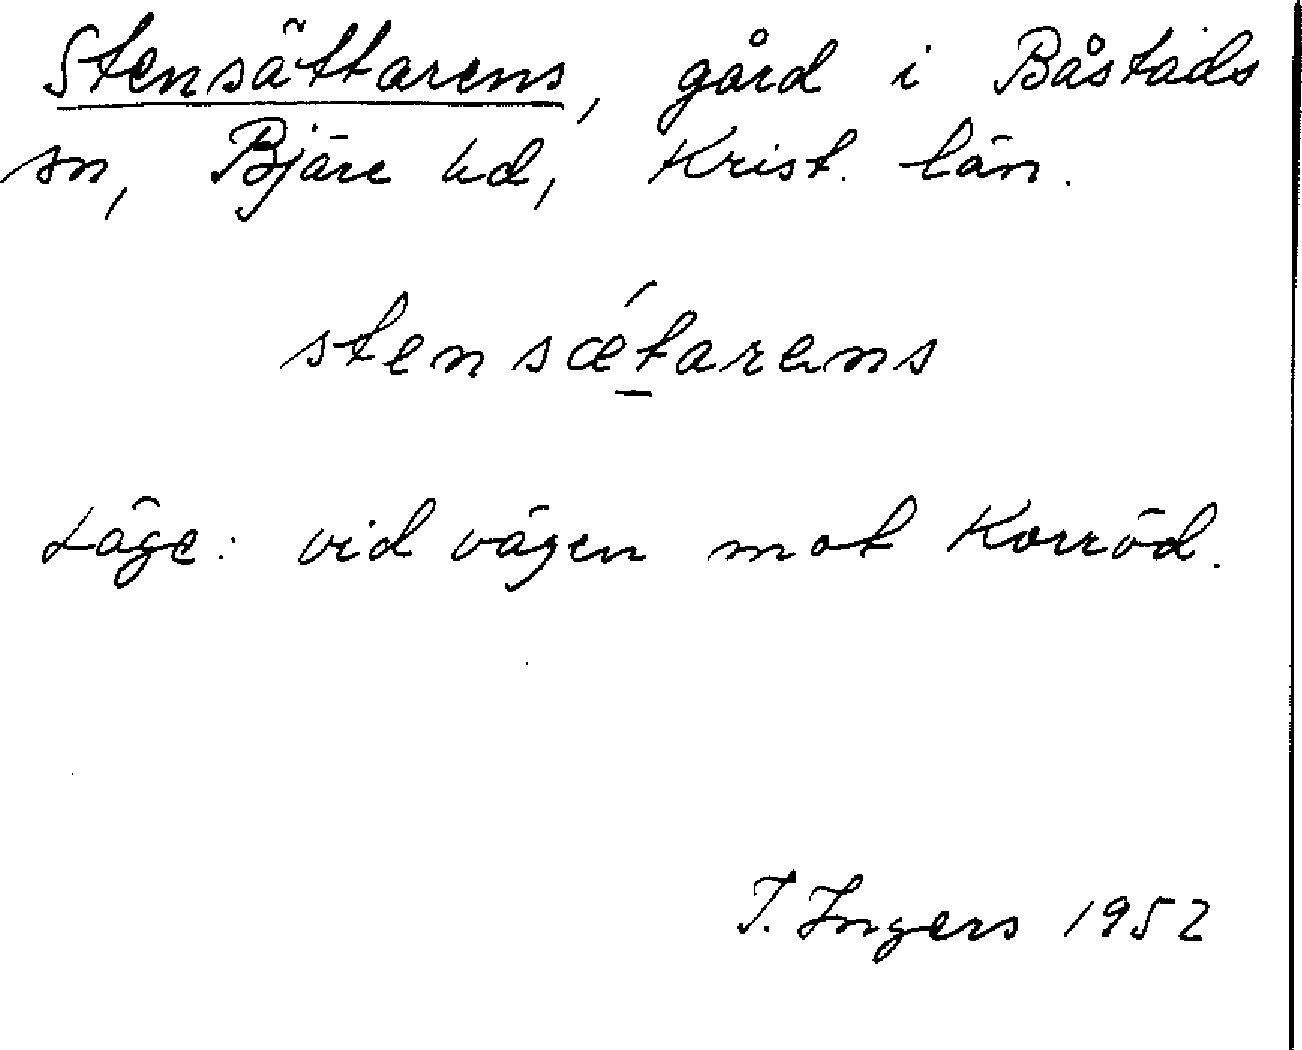 Stensättarens, gård i Båstads
sn, Bjäre hd, Krist. län.
stensǽtarens
Läge: vid vägen mot Korröd.
I. Ingers 1952